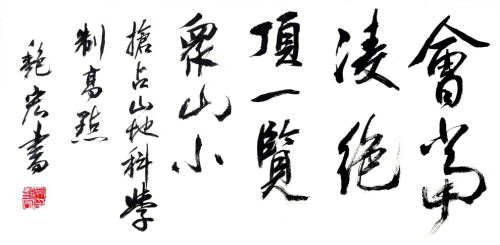 會當
凌絕
頂一覽
衆山小
搶占山地科學
制高點
宏書